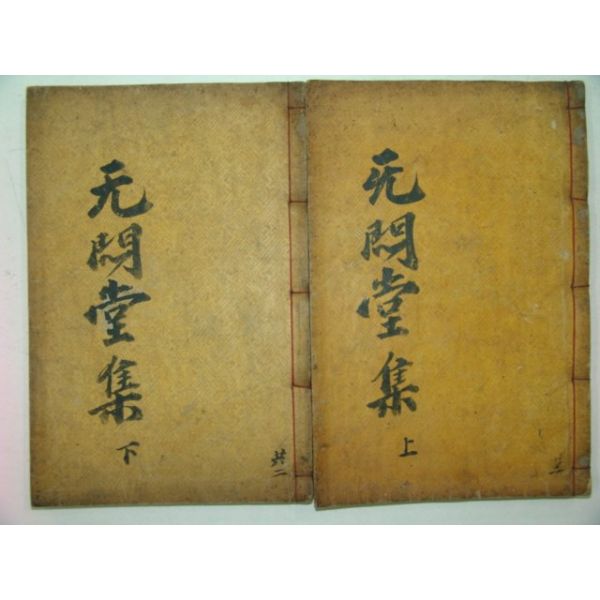 无悶堂集
上
无悶堂集
下
共二